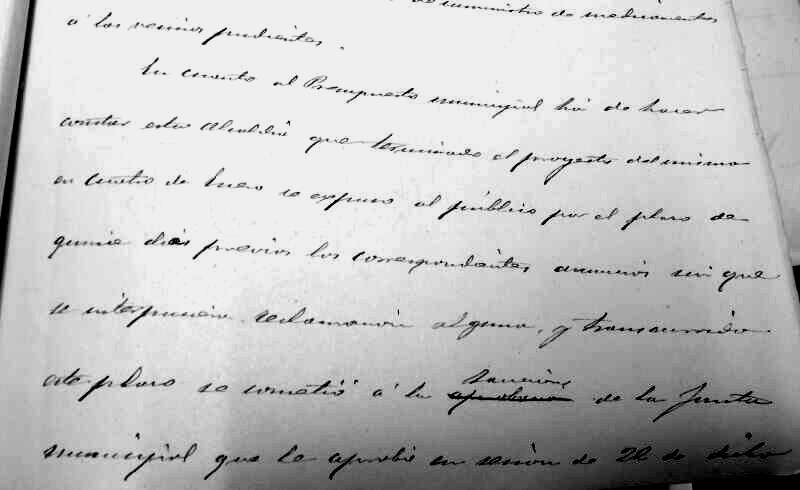 de suministro de medicamentos
á los vecinos pudientes.
En cuanto al Presupuesto municipal há de hacer
constar esta Alcaldia que terminado el proyecto del mismo
en cuatro de Enero se expuso al público por el plazo de
quince dias previos los correspondientes anuncios sin que
se interpusiera reclamación alguna, y transcurrido
este plazo se sometió á la sanción de la Junta
municipal que le aprobó en sesión de 22 de dicho